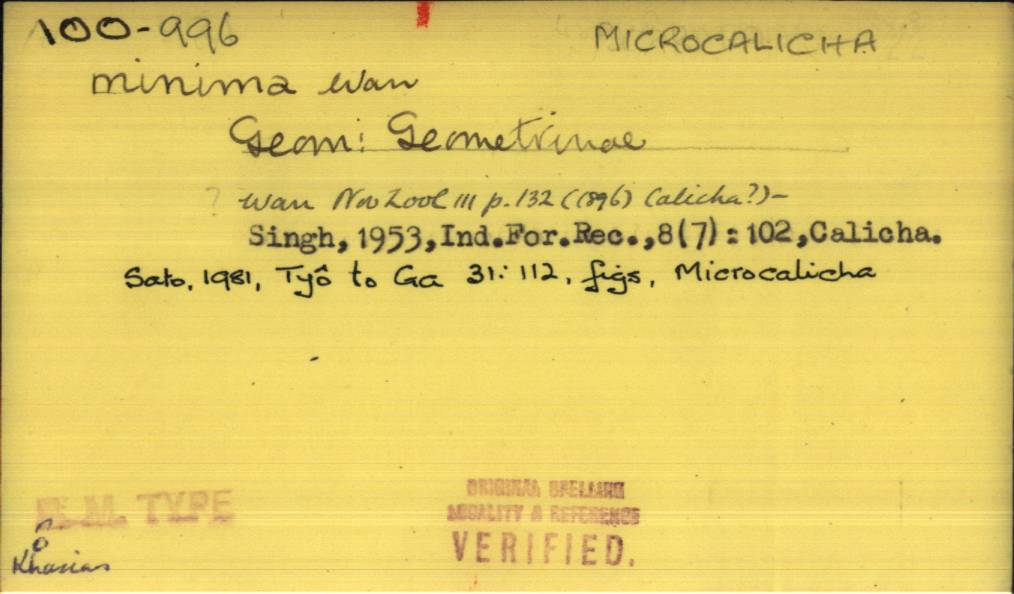 100-996 MICROCALICHA
minima Warr
Geom: Geometrinae
? Warr Nov Zool III p. 132 (1896) Calicha?)-
Singh, 1953, Ind.For.Rec.,8(7):102,Calicha.
Sato, 1981, Tyô to Ga 31: 112, figs, Microcalicha
B.M. TYPE
ORIGINAL SPELLING
LOCALITY & REFERENCE
VERIFIED.
♂
Khasias